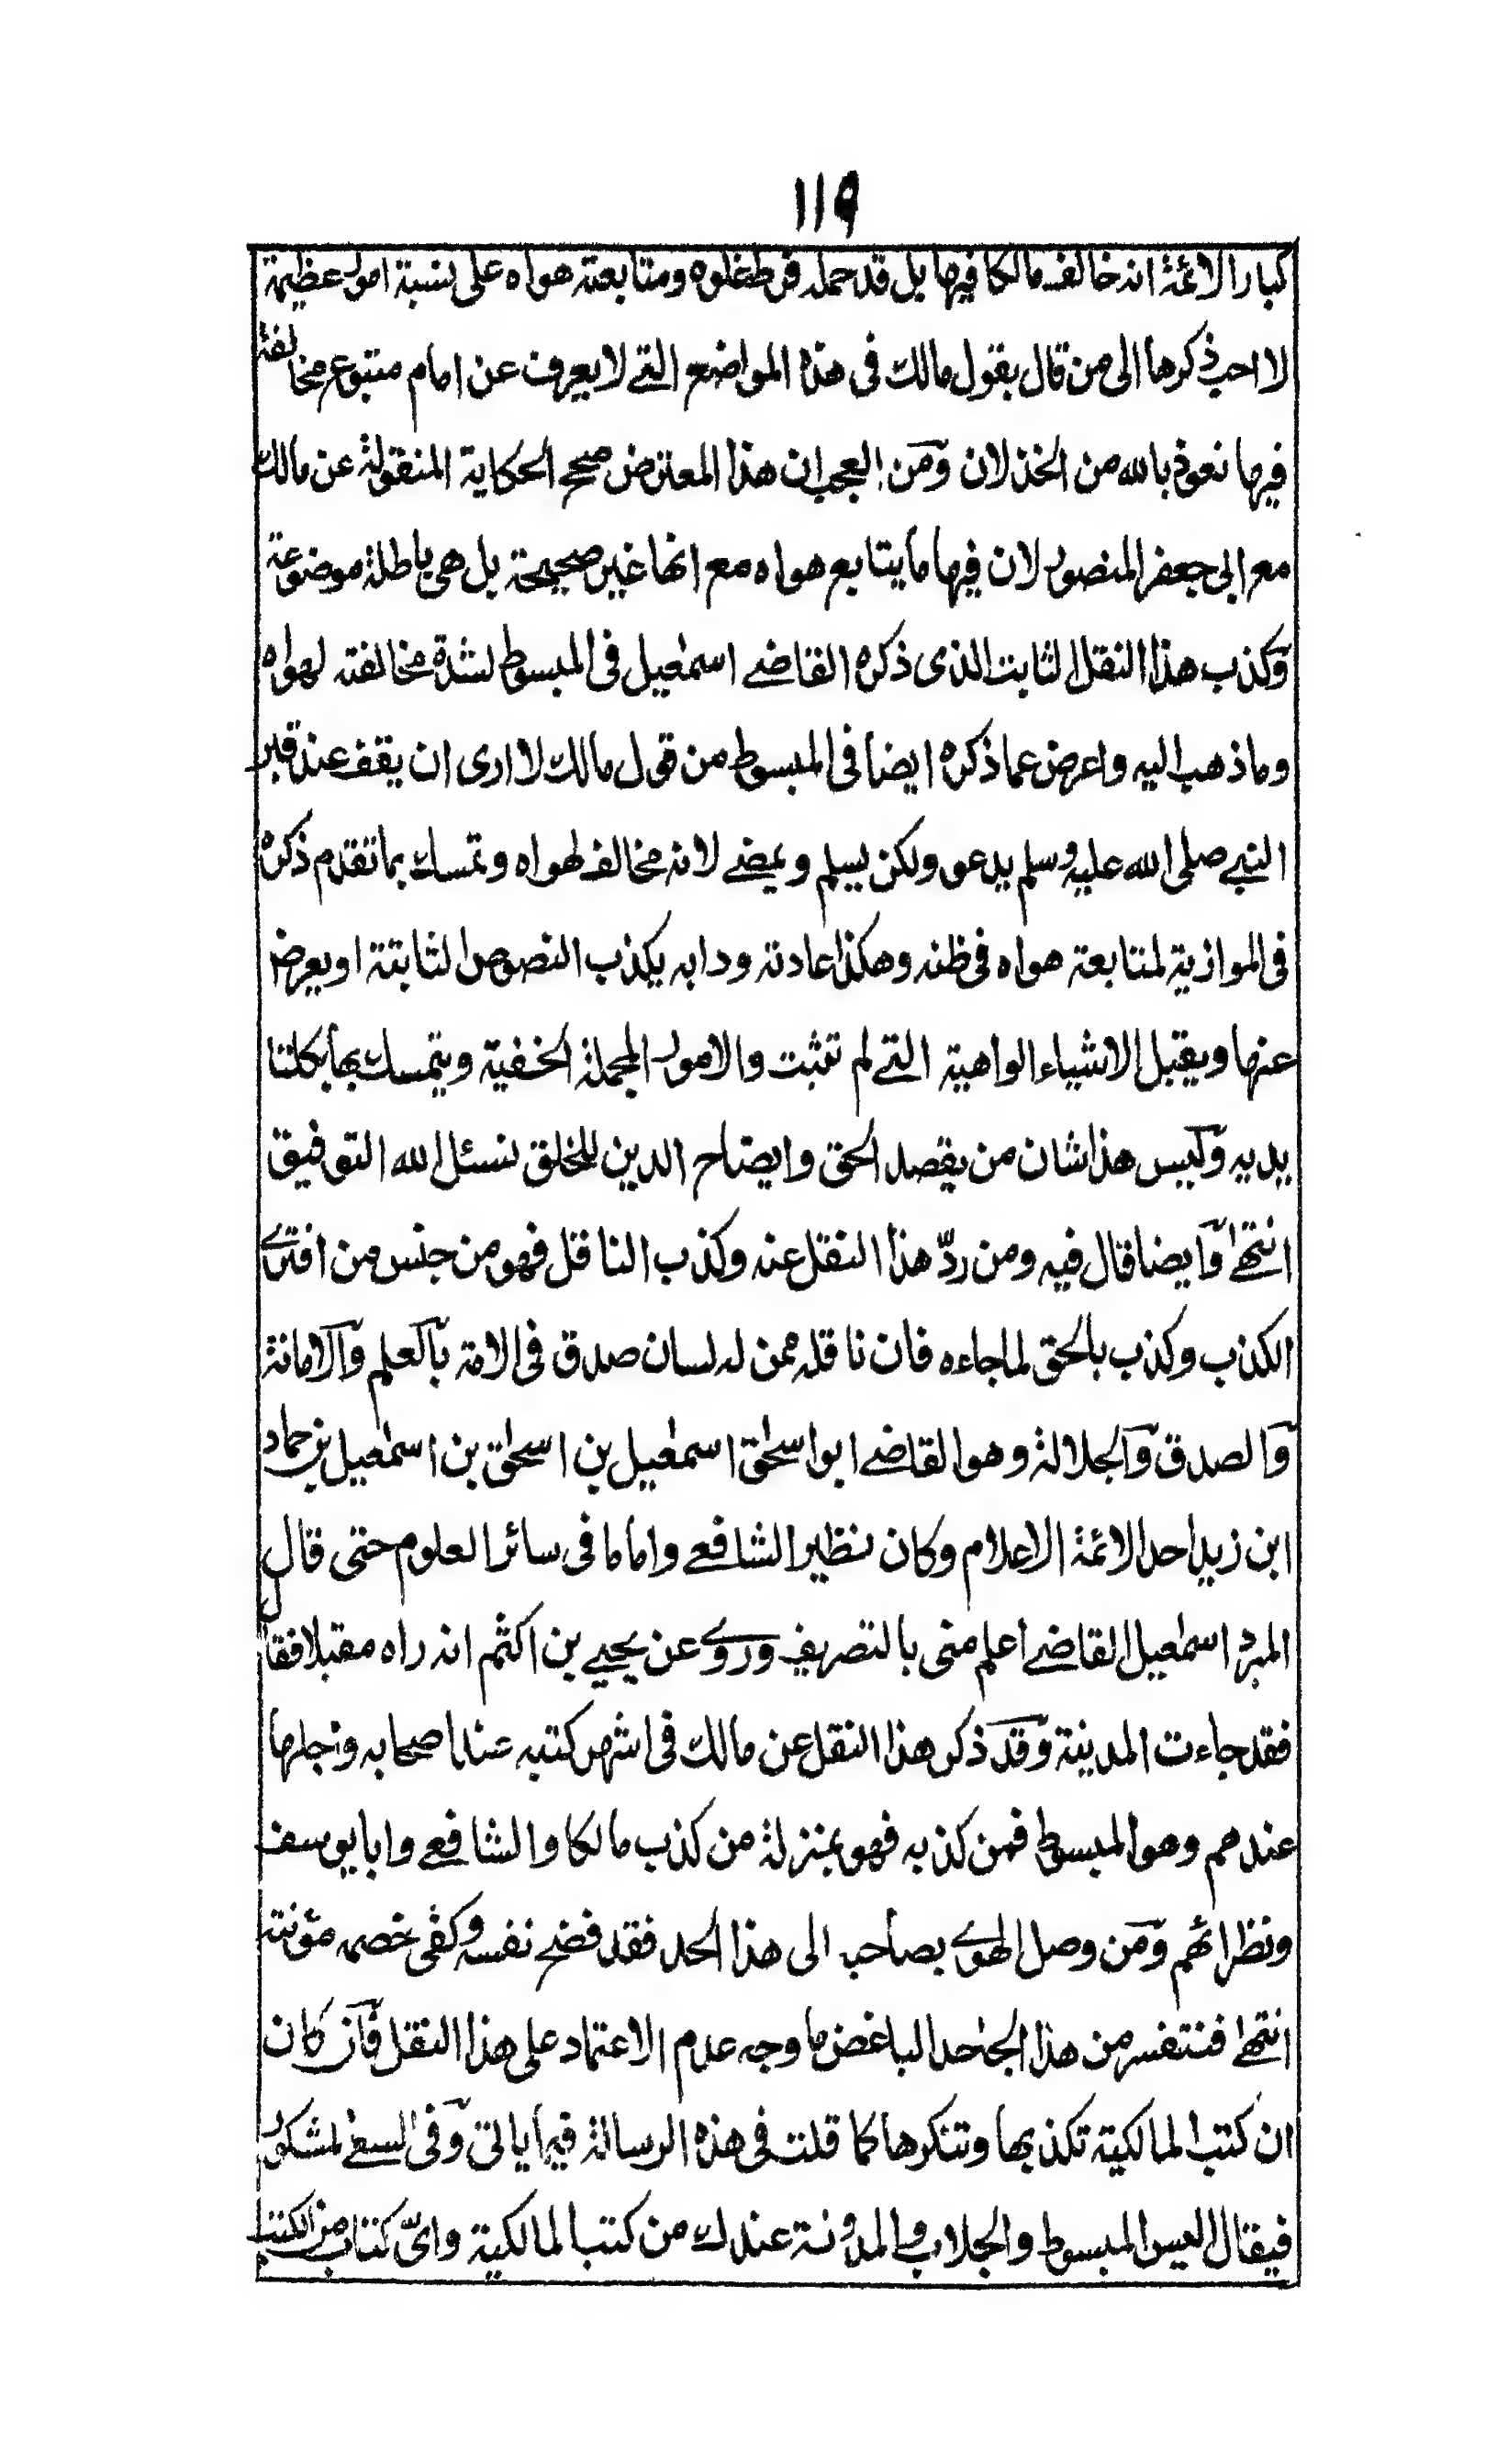 ١١٩
كبار الائمة انه خالف مالكا فيها بل قد حمله فرط غلوه ومتابعته هواه على نسبة امور عظيمة
لا احب ذكرها الى من قال بقول مالك فى هذه المواضع التے لا يعرف عن امام متبوع مخالفته
فيها نعوذ بالله من الخذلان ومن العجب ان هذا المعترض صحح الحكاية المنقولة عن مالك
مع ابى جعفر المنصور لان فيها ما يتابع هواه مع انها غير صحيحة بل هى باطلة موضوعة
وكذب هذا النقل الثابت الذى ذكره القاضے اسمٰعيل فى المبسوط لشدة مخالفته لهواه
وما ذهب اليه واعرض عما ذكره ايضا فى المبسوط من قول مالك لا ارى ان يقف عند قبر
النبے صلى الله عليه وسلم يدعو ولكن يسلم ويمضے لانه مخالف لهواه وتمسك بما تقدم ذكره
فى الموازية لمتابعته هواه فى ظنه وهكذا عادته ودابه يكذب النصوص الثابتة او يعرض
عنها ويقبل الاشياء الواهية التے لم تثبت والامور المجملة الخفية ويتمسك بها بكلتا
يديه وليس هذا شان من يقصد الحق وايضاح الدين للخلق نسئل الله التوفيق
انتهٰى وايضا قال فيه ومن ردّ هذا النقل عنه وكذب الناقل فهو من جنس من افترے
الكذب وكذب بالحق لما جاءه فان ناقله ممن له لسان صدق فى الامة بالعلم والامانة
والصدق والجلالة وهو القاضے ابو اسحٰق اسمٰعيل بن اسحٰق بن اسمٰعيل بن حماد
ابن زيد احد الائمة الاعلام وكان نظير الشافعے واماما فى سائر العلوم حتى قال
المبرد اسمٰعيل القاضے اعلم منى بالتصريف وروے عن يحيے بن اكثم انه راه مقبلا فقال
فقد جاءت المدينة وقد ذكر هذا النقل عن مالك فى اشهر كتبه عند اصحابه واجلها
عندهم وهو المبسوط فمن كذب به فهو بمنزلة من كذب مالكا والشافعے وابا يوسف
ونظرائهم ومن وصل الهوے بصاحبه الى هذا الحد فقد فضح نفسه وكفى خصمه مؤنته
انتهٰى فنتفسر من هذا الجاحد الباغض ما وجه عدم الاعتماد على هذا النقل فان كان
ان كتب المالكية تكذبها وتنكرها كما قلت فى هذه الرسالة فيما ياتى وفى السعى المشكور
فيقال اليس المبسوط والجلاب والمدونة عندك من كتب المالكية واىّ كتاب من الكتب